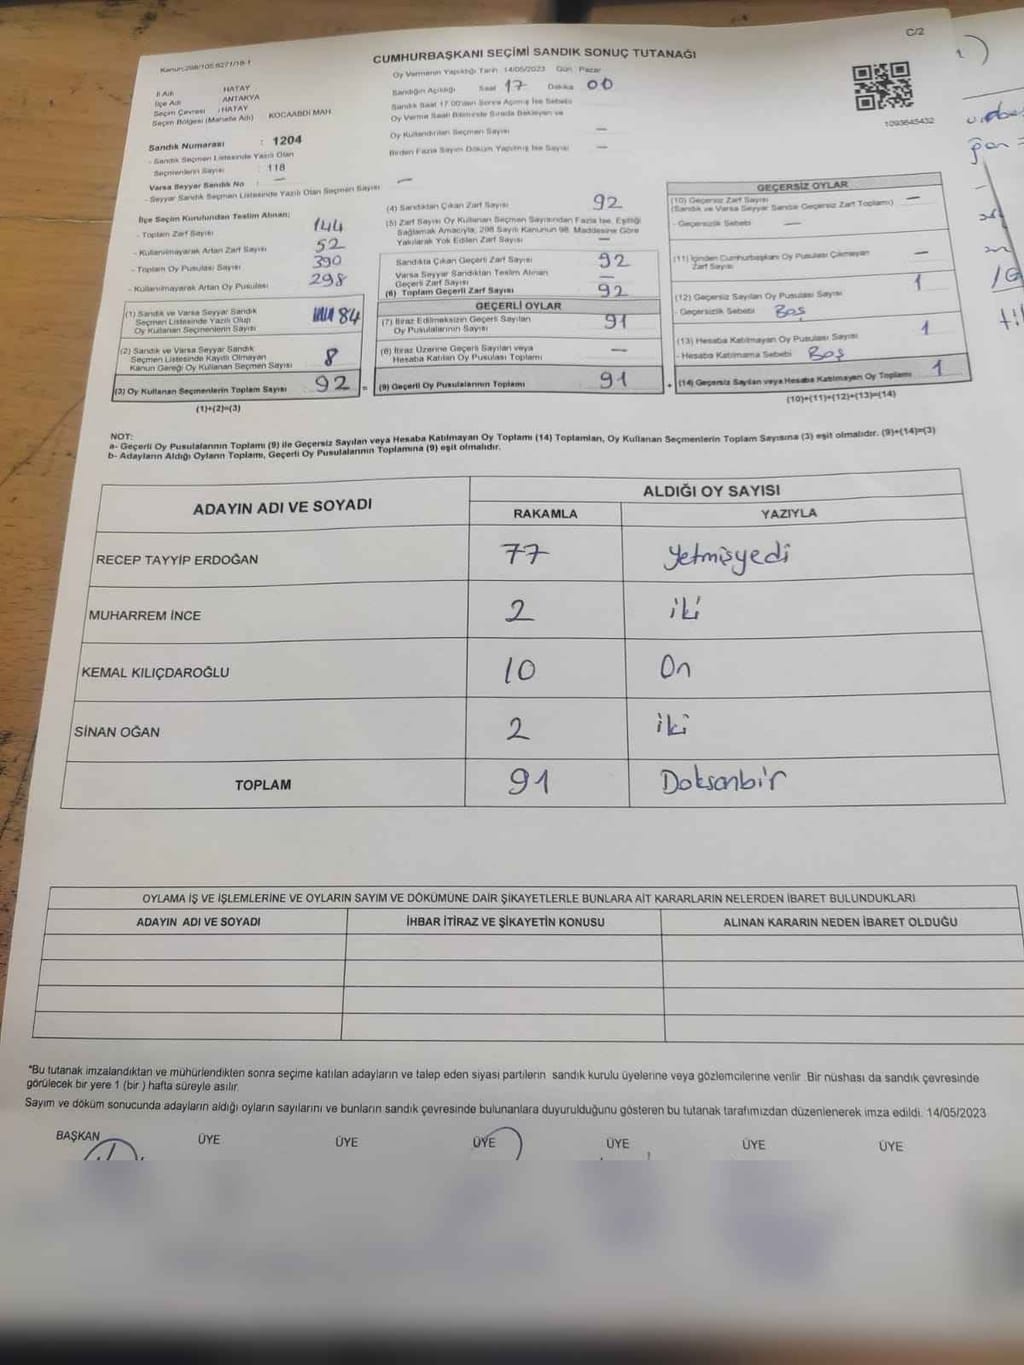 C/2
Kanun:298/105,6271/18-1
CUMHURBAŞKANI SEÇİMİ SANDIK SONUÇ TUTANAĞI
Oy Vermenin Yapıldığı Tarih 14/05/2023 Gün Pazar
İl Adı HATAY
İlçe Adı ANTAKYA
Seçim Çevresi : HATAY
Seçim Bölgesi (Mahalle Adı) KOCAABDİ MAH.
Sandık Numarası : 1204
- Sandık Seçmen Listesinde Yazılı Olan
Seçmenlerin Sayısı : 118
Varsa Seyyar Sandık No : —
- Seyyar Sandık Seçmen Listesinde Yazılı Olan Seçmen Sayısı —
Sandığın Açıldığı Saat 17 Dakika 00
Sandık Saat 17.00'den Sonra Açılmış İse Sebebi
Oy Verme Saati Bitiminde Sırada Bekleyen ve
Oy Kullandırılan Seçmen Sayısı —
Birden Fazla Sayım Döküm Yapılmış İse Sayısı —
1093645432
İlçe Seçim Kurulundan Teslim Alınan;
- Toplam Zarf Sayısı 144
- Kullanılmayarak Artan Zarf Sayısı 52
- Toplam Oy Pusulası Sayısı 390
- Kullanılmayarak Artan Oy Pusulası 298
(1) Sandık ve Varsa Seyyar Sandık
Seçmen Listesinde Yazılı Olup
Oy Kullanan Seçmenlerin Sayısı 84
(2) Sandık ve Varsa Seyyar Sandık
Seçmen Listesinde Kayıtlı Olmayan
Kanun Gereği Oy Kullanan Seçmen Sayısı 8
(3) Oy Kullanan Seçmenlerin Toplam Sayısı 92 =
(1)+(2)=(3)
(4) Sandıktan Çıkan Zarf Sayısı 92
(5) Zarf Sayısı Oy Kullanan Seçmen Sayısından Fazla İse, Eşitliği
Sağlamak Amacıyla, 298 Sayılı Kanunun 98. Maddesine Göre
Yakılarak Yok Edilen Zarf Sayısı —
Sandıkta Çıkan Geçerli Zarf Sayısı 92
Varsa Seyyar Sandıktan Teslim Alınan
Geçerli Zarf Sayısı —
(6) Toplam Geçerli Zarf Sayısı 92
GEÇERLİ OYLAR
(7) İtiraz Edilmeksizin Geçerli Sayılan
Oy Pusulalarının Sayısı 91
(8) İtiraz Üzerine Geçerli Sayılan veya
Hesaba Katılan Oy Pusulası Toplamı —
(9) Geçerli Oy Pusulalarının Toplamı 91 +
GEÇERSİZ OYLAR
(10) Geçersiz Zarf Sayısı —
(Sandık ve Varsa Seyyar Sandık Geçersiz Zarf Toplamı)
- Geçersizlik Sebebi —
(11) İçinden Cumhurbaşkanı Oy Pusulası Çıkmayan
Zarf Sayısı —
(12) Geçersiz Sayılan Oy Pusulası Sayısı 1
- Geçersizlik Sebebi Boş
(13) Hesaba Katılmayan Oy Pusulası Sayısı 1
- Hesaba Katılmama Sebebi Boş
(14) Geçersiz Sayılan veya Hesaba Katılmayan Oy Toplamı 1
(10)+(11)+(12)+(13)=(14)
NOT:
a- Geçerli Oy Pusulalarının Toplamı (9) ile Geçersiz Sayılan veya Hesaba Katılmayan Oy Toplamı (14) Toplamları, Oy Kullanan Seçmenlerin Toplam Sayısına (3) eşit olmalıdır. (9)+(14)=(3)
b- Adayların Aldığı Oyların Toplamı, Geçerli Oy Pusulalarının Toplamına (9) eşit olmalıdır.
ADAYIN ADI VE SOYADI ALDIĞI OY SAYISI
RAKAMLA YAZIYLA
RECEP TAYYİP ERDOĞAN 77 Yetmişyedi
MUHARREM İNCE 2 iki
KEMAL KILIÇDAROĞLU 10 On
SİNAN OĞAN 2 iki
TOPLAM 91 Doksanbir
OYLAMA İŞ VE İŞLEMLERİNE VE OYLARIN SAYIM VE DÖKÜMÜNE DAİR ŞİKAYETLERLE BUNLARA AİT KARARLARIN NELERDEN İBARET BULUNDUKLARI
ADAYIN ADI VE SOYADI İHBAR İTİRAZ VE ŞİKAYETİN KONUSU ALINAN KARARIN NEDEN İBARET OLDUĞU
*Bu tutanak imzalandıktan ve mühürlendikten sonra seçime katılan adayların ve talep eden siyasi partilerin sandık kurulu üyelerine veya gözlemcilerine verilir. Bir nüshası da sandık çevresinde
görülecek bir yere 1 (bir ) hafta süreyle asılır.
Sayım ve döküm sonucunda adayların aldığı oyların sayılarını ve bunların sandık çevresinde bulunanlara duyurulduğunu gösteren bu tutanak tarafımızdan düzenlenerek imza edildi. 14/05/2023
BAŞKAN ÜYE ÜYE ÜYE ÜYE ÜYE ÜYE